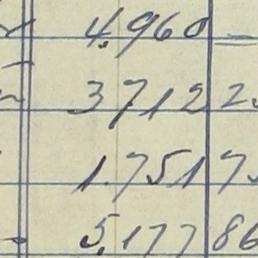 4,960 —
3,712 2
1,751 7
5,177 86